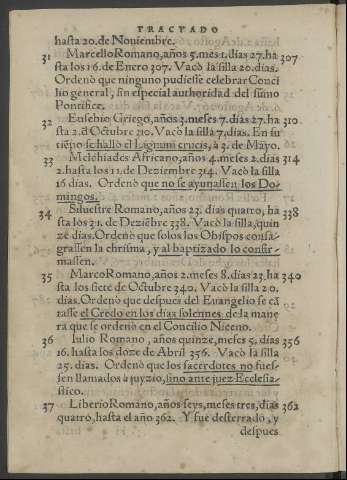 TRACTADO
hasta 20. de Nouiembre.
31 Marcello Romano, años 5. mes 1. dias 27. ha 307
sta los 16. de Enero 307. Vacò la silla 20. dias.
Ordenò que ninguno pudiesse celebrar Conci
lio general, sin especial authoridad del sumo
Pontifice.
32 Eusebio Griego, años 2. meses 7. dias 27. ha 310
sta 2. d Octubre 310. Vacò la silla 7, dias. En su
tiẽpo se hallo el Lignum crucis, à 3. de Mayo.
33 Melchiades Africano, años 4. meses 2. dias 314
2. hasta los 11. de Deziembre 314. Vacò la silla
16 dias. Ordenò que no se ayunassen los Do-
mingos.
34 Siluestre Romano, años 23. dias quatro, ha 338
sta los 31. de Deziẽbre 338. Vacò la silla, quin
ze dias. Ordenò que solos los Obispos consa-
grassen la chrisma, y al baptizado lo confir-
massen.
35 Marco Romano, años 2. meses 8. dias 23. ha 340
sta los siete de Octubre 340. Vacò la silla 20.
dias. Ordenò que despues del Euangelio se cã
tasse el Credo en los dias solennes de la mane
ra que se ordenò en el Concilio Niceno.
36 Iulio Romano, años quinze, meses 5. dias 356
16. hasta los doze de Abril 356. Vacò la silla
25. dias. Ordenò que los sacerdotes no fues-
sen llamados à juyzio, sino ante juez Ecclesia-
stico.
37 Liberio Romano, años seys, meses tres, dias 362
quatro, hasta el año 362. Y fue desterrado, y
despues